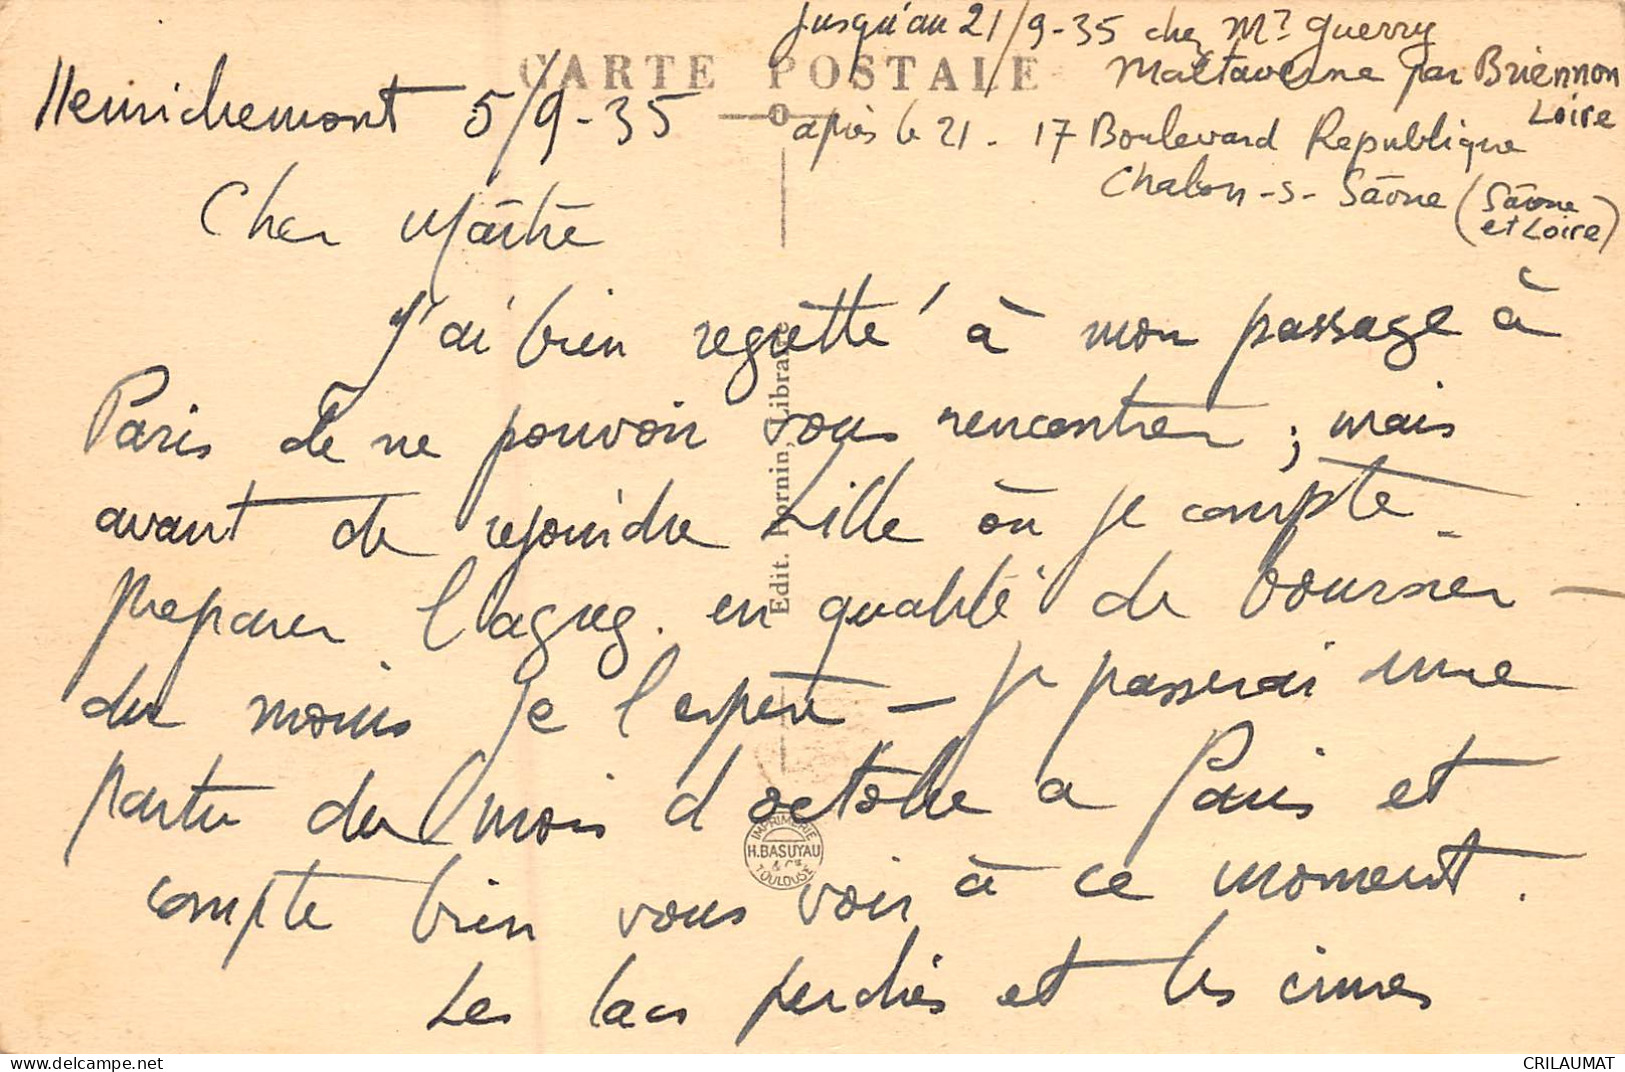 jusqu'au 21/9-35 chez Mr Guerry
Maltaverne par Briennon
Loire
après le 21 - 17 Boulevard Republique
Chalon-s-Sâone (Sâone
et Loire)
CARTE POSTALE
Henrichemont 5/9-35
Cher Maître
J'ai bien regretté à mon passage à
Paris de ne pouvoir vous rencontrer ; mais
avant de rejoindre Lille où je compte
preparer l'agreg. en qualité de boursier -
du moins je l'espere - je passerai une
partie du mois d'octobre a Paris et
compte bien vous voir à ce moment.
Les lacs perdus et les cimes
Edit. Librairie
IMPRIMERIE
H. BASUYAU
& Cie
TOULOUSE
CRILAUMAT